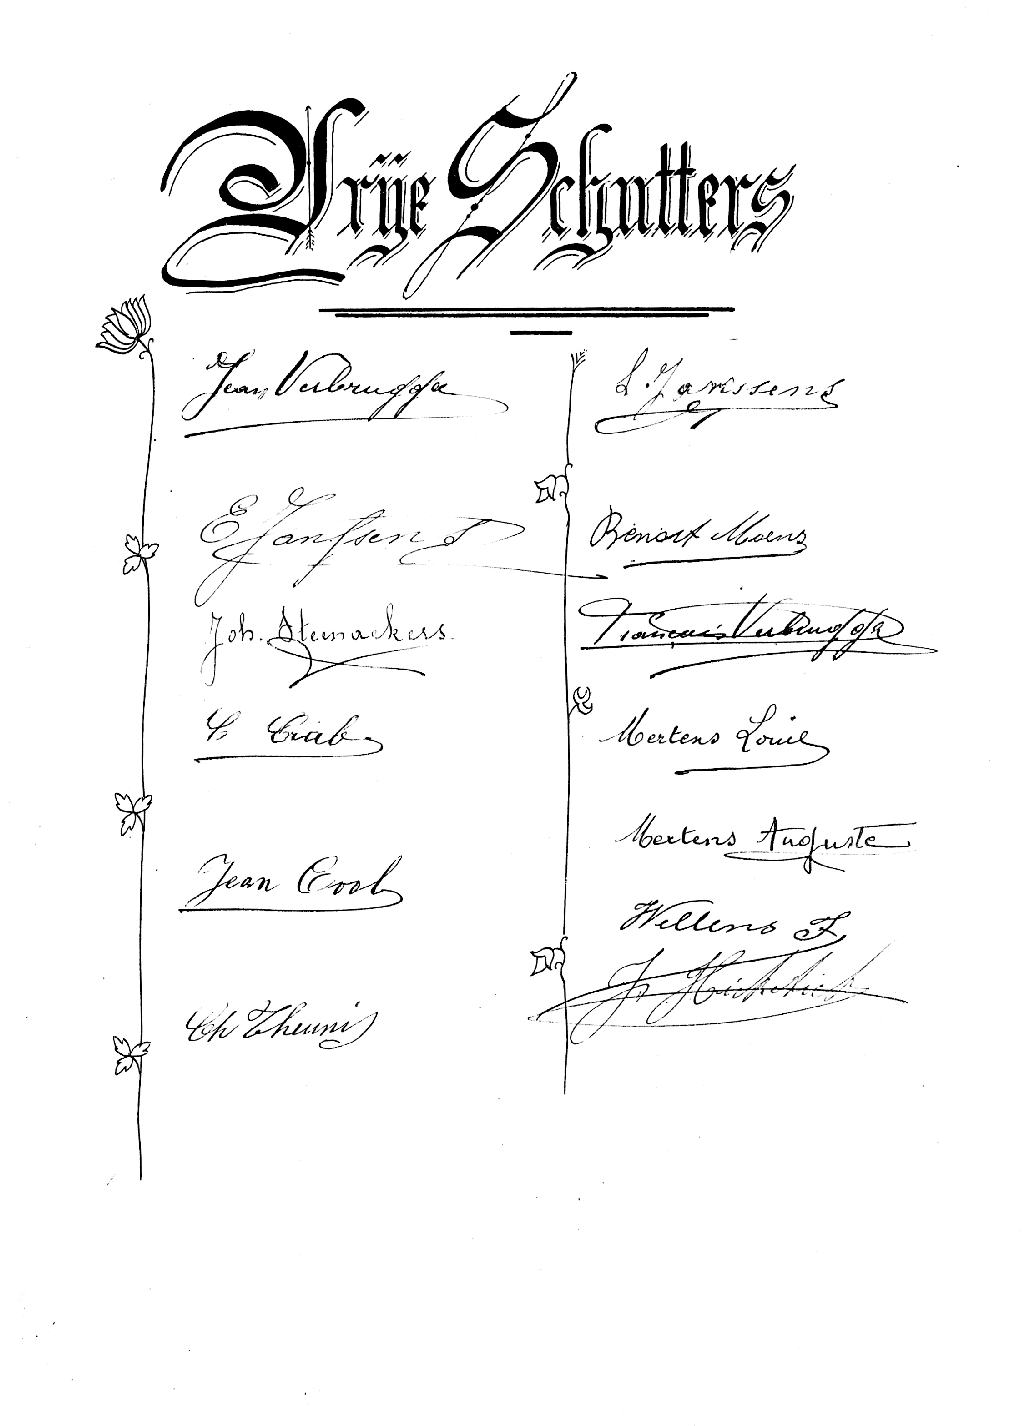 Vrije Schutters
Jean Verbrugge
E Janssens
Joh. Steinackers
C. Crab
Jean Cool
Ch Theunis
L. Janssens
Benoit Moens
François Verbrugge
Mertens Louie
Mertens Auguste
Willems F